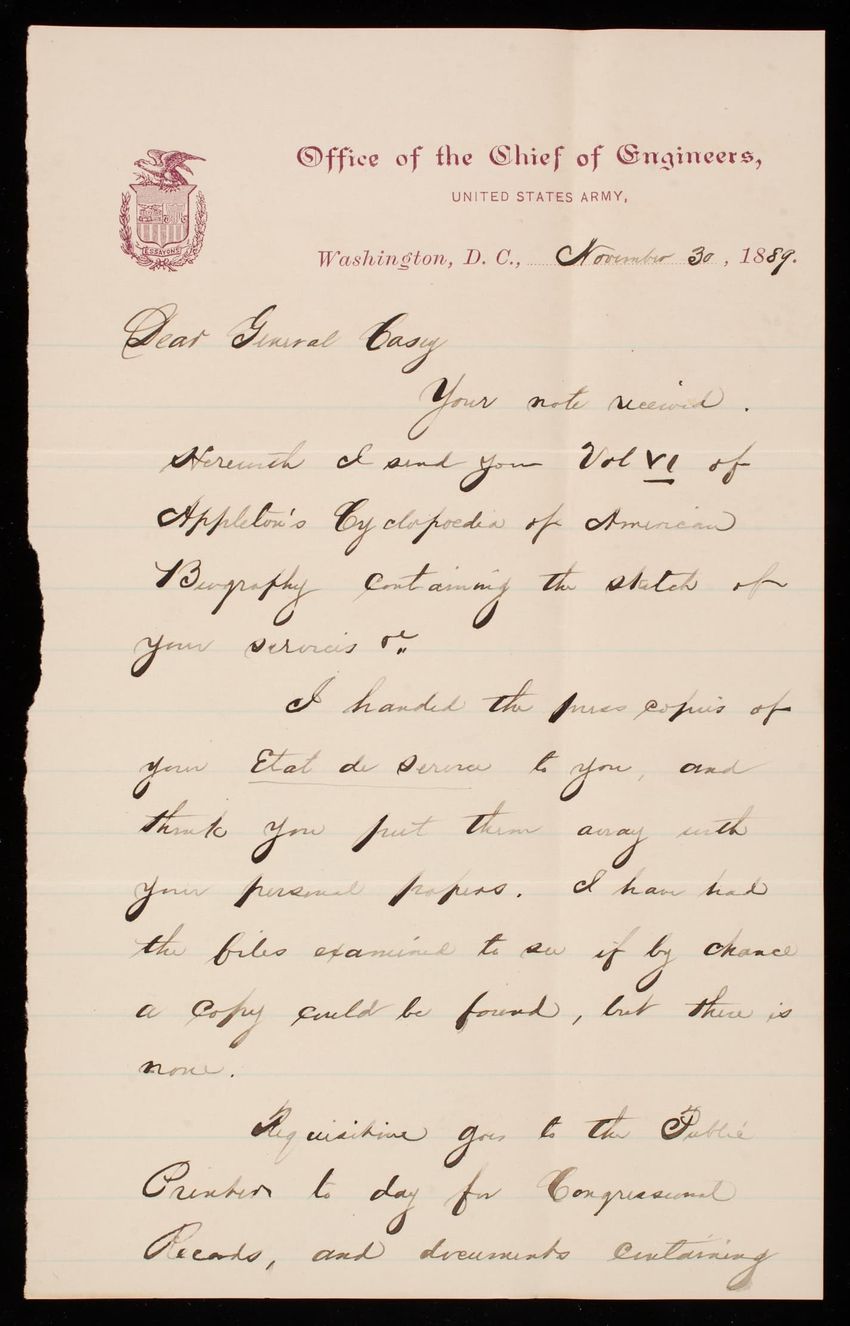 Office of the Chief of Engineers,
UNITED STATES ARMY,
ESSAYONS
Washington, D. C., November 30, 1889.
Dear General Casey
Your note received.
Herewith I send you Vol VI of
Appleton's Cyclopoedia of American
Biography containing the sketch of
your services &c.
I handed the press copies of
your Etat de Service to you, and
think you put them away with
your personal papers. I have had
the files examined to see if by chance
a copy could be found, but there is
none.
Requisition goes to the Public
Printer to day for Congressional
Records, and documents containing